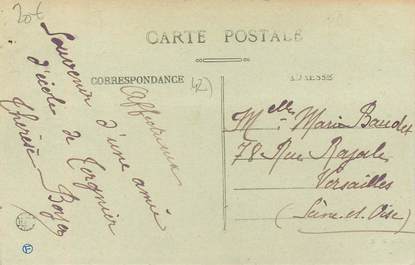 20€
CARTE POSTALE
CORRESPONDANCE
(2)
ADRESSE
Affectueux
Souvenir d'une amie
d'école de Tergnier
Thérèse Boyer
Melle Marie Baudet
78 Rue Royale
Versailles
(Seine-et-Oise)